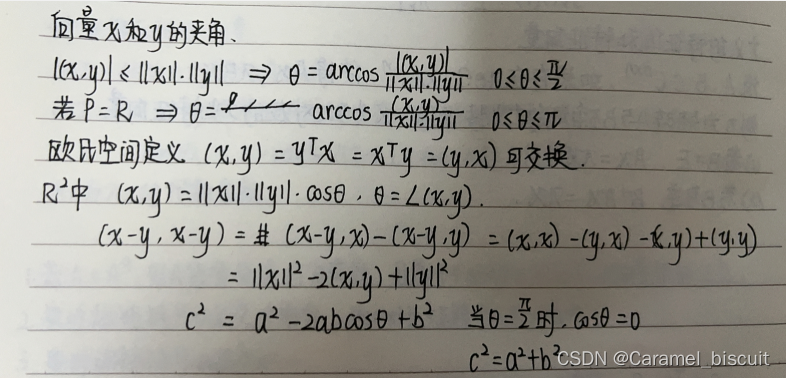 向量x和y的夹角.
|(x,y)| ≤ ||x||·||y|| ⇒ θ = arccos |(x,y)| / ||x||·||y|| 0≤θ≤π/2
若 P=R ⇒ θ= arccos (x,y) / ||x||·||y|| 0≤θ≤π
欧氏空间定义 (x,y) = yᵀx = xᵀy = (y,x) 可交换.
R²中 (x,y) = ||x||·||y||·cosθ, θ=∠(x,y).
(x-y, x-y) = (x-y,x)-(x-y,y) = (x,x)-(y,x)-(x,y)+(y,y)
= ||x||²-2(x,y)+||y||²
c² = a²-2abcosθ+b² 当θ=π/2时, cosθ=0
c²=a²+b²
CSDN @Caramel_biscuit